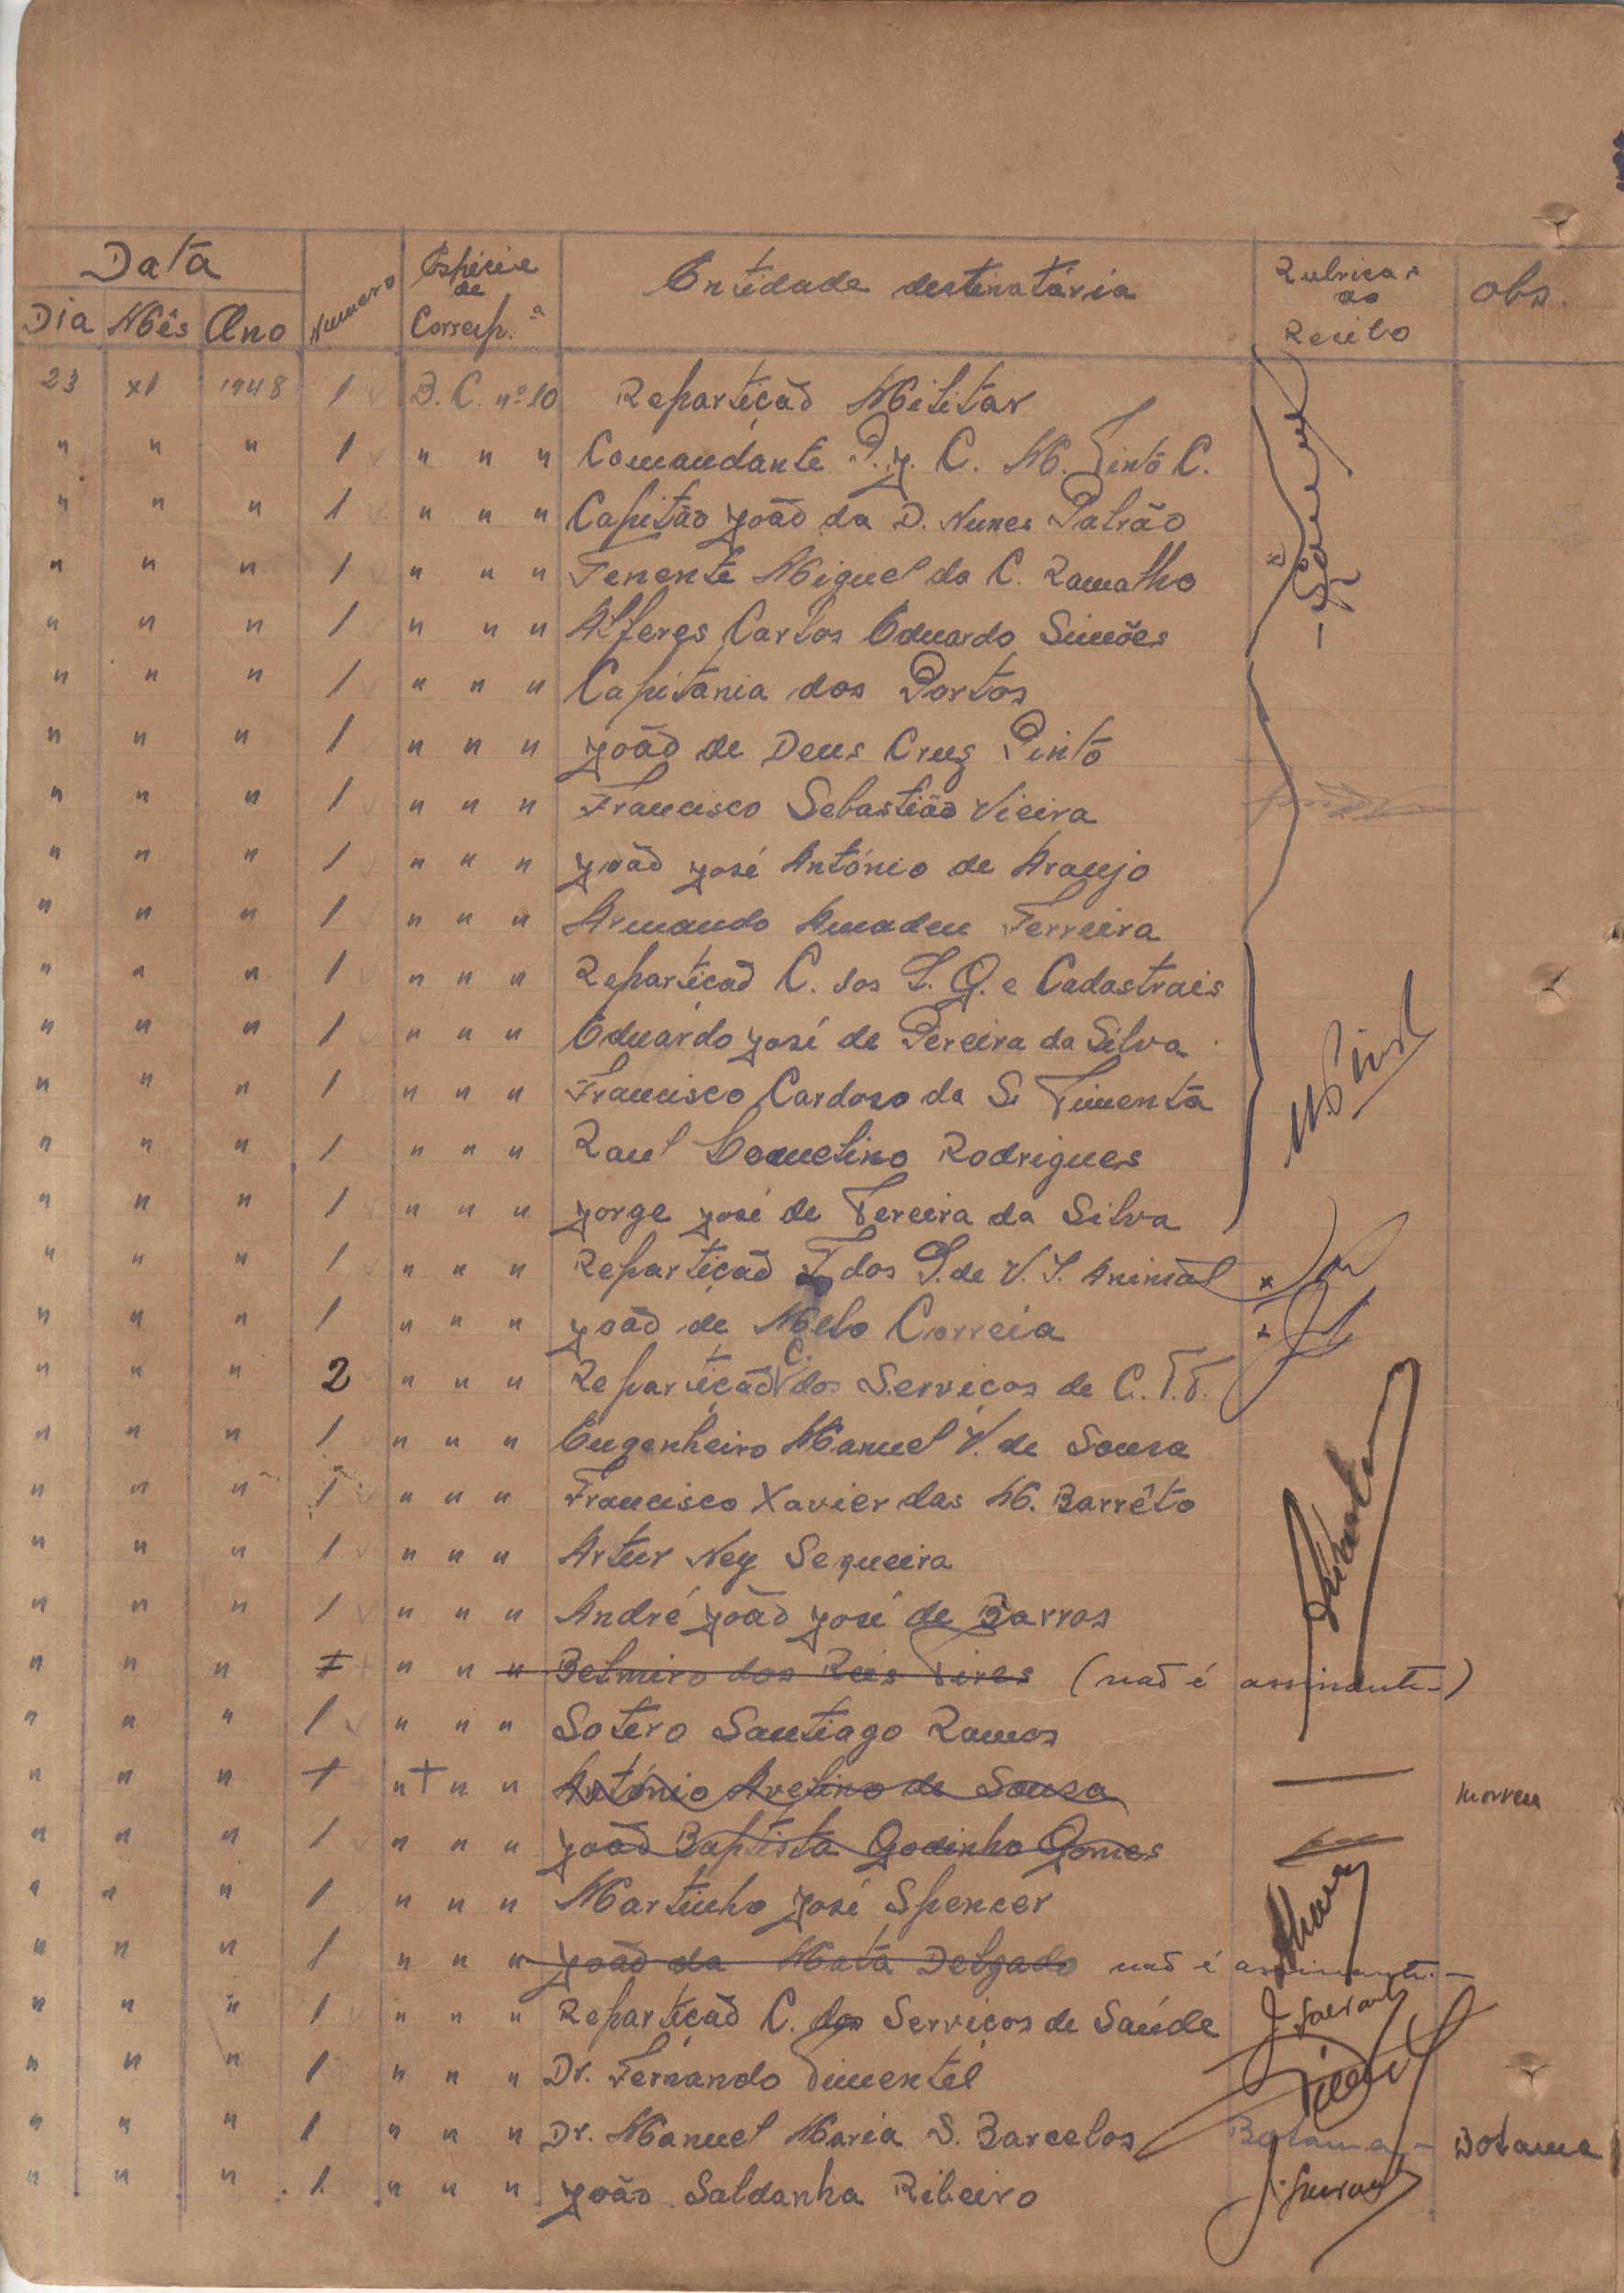 Data
Dia Mês Ano
Numero
Espécie de Corresp.ª
Entidade destinatária
Rubricas ao Recibo
Obs.
23 XI 1948 1 B. C. nº 10 Repartição Militar
" " " 1 " " " Comandante P. J. C. M. Pinto C.
" " " 1 " " " Capitão João da D. Nunes Patrão
" " " 1 " " " Tenente Miguel da C. Ramalho
" " " 1 " " " Alferes Carlos Eduardo Simões
" " " 1 " " " Capitania dos Portos
" " " 1 " " " João de Deus Cruz Pinto
" " " 1 " " " Francisco Sebastião Vieira
" " " 1 " " " João José António de Araujo
" " " 1 " " " Armando Amadeu Ferreira
" " " 1 " " " Repartição C. dos S. G. e Cadastrais
" " " 1 " " " Eduardo José de Pereira da Silva
" " " 1 " " " Francisco Cardoso da S. Pimenta
" " " 1 " " " Raul Rodrigues
" " " 1 " " " Jorge José de Pereira da Silva
" " " 1 " " " Repartição T. dos S. de V. I. Animal
" " " 1 " " " João de Melo Correia
" " " 2 " " " Repartição C. dos Serviços de C. T. T.
" " " 1 " " " Engenheiro Manuel V. de Sousa
" " " 1 " " " Francisco Xavier das M. Barrêto
" " " 1 " " " Artur Ney Sequeira
" " " 1 " " " André João José de Barros
" " " 1 " " " Belmiro dos Reis Pires (não é assinante)
" " " 1 " " " Sotero Santiago Ramos
" " " 1 " " " António Avelino de Sousa — morreu
" " " 1 " " " João Baptista Godinho Gomes
" " " 1 " " " Martinho José Spencer
" " " 1 " " " João da Mata Delgado não é assinante.-
" " " 1 " " " Repartição C. dos Serviços de Saúde
" " " 1 " " " Dr. Fernando Pimentel
" " " 1 " " " Dr. Manuel Maria S. Barcelos Bolama - Bolama
" " " 1 " " " João Saldanha Ribeiro